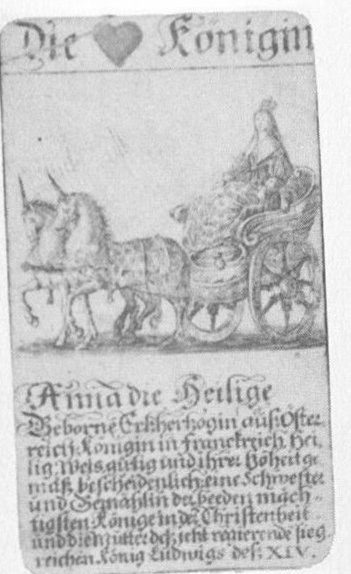 Die ♥ Königin
Anna die Heilige
Geborne Ertzhertzogin aus Öster
reich Königin in Franckreich Hei
lig, Weis, gütig und ihrer Hoheit ge
mäß, bescheidenlich, eine Schwester
und Gemahlin der beeden mäch-
tigsten Könige in der Christenheit
und die Mutter deß jetzt regierende sieg
reichen König Ludwigs des XIV.